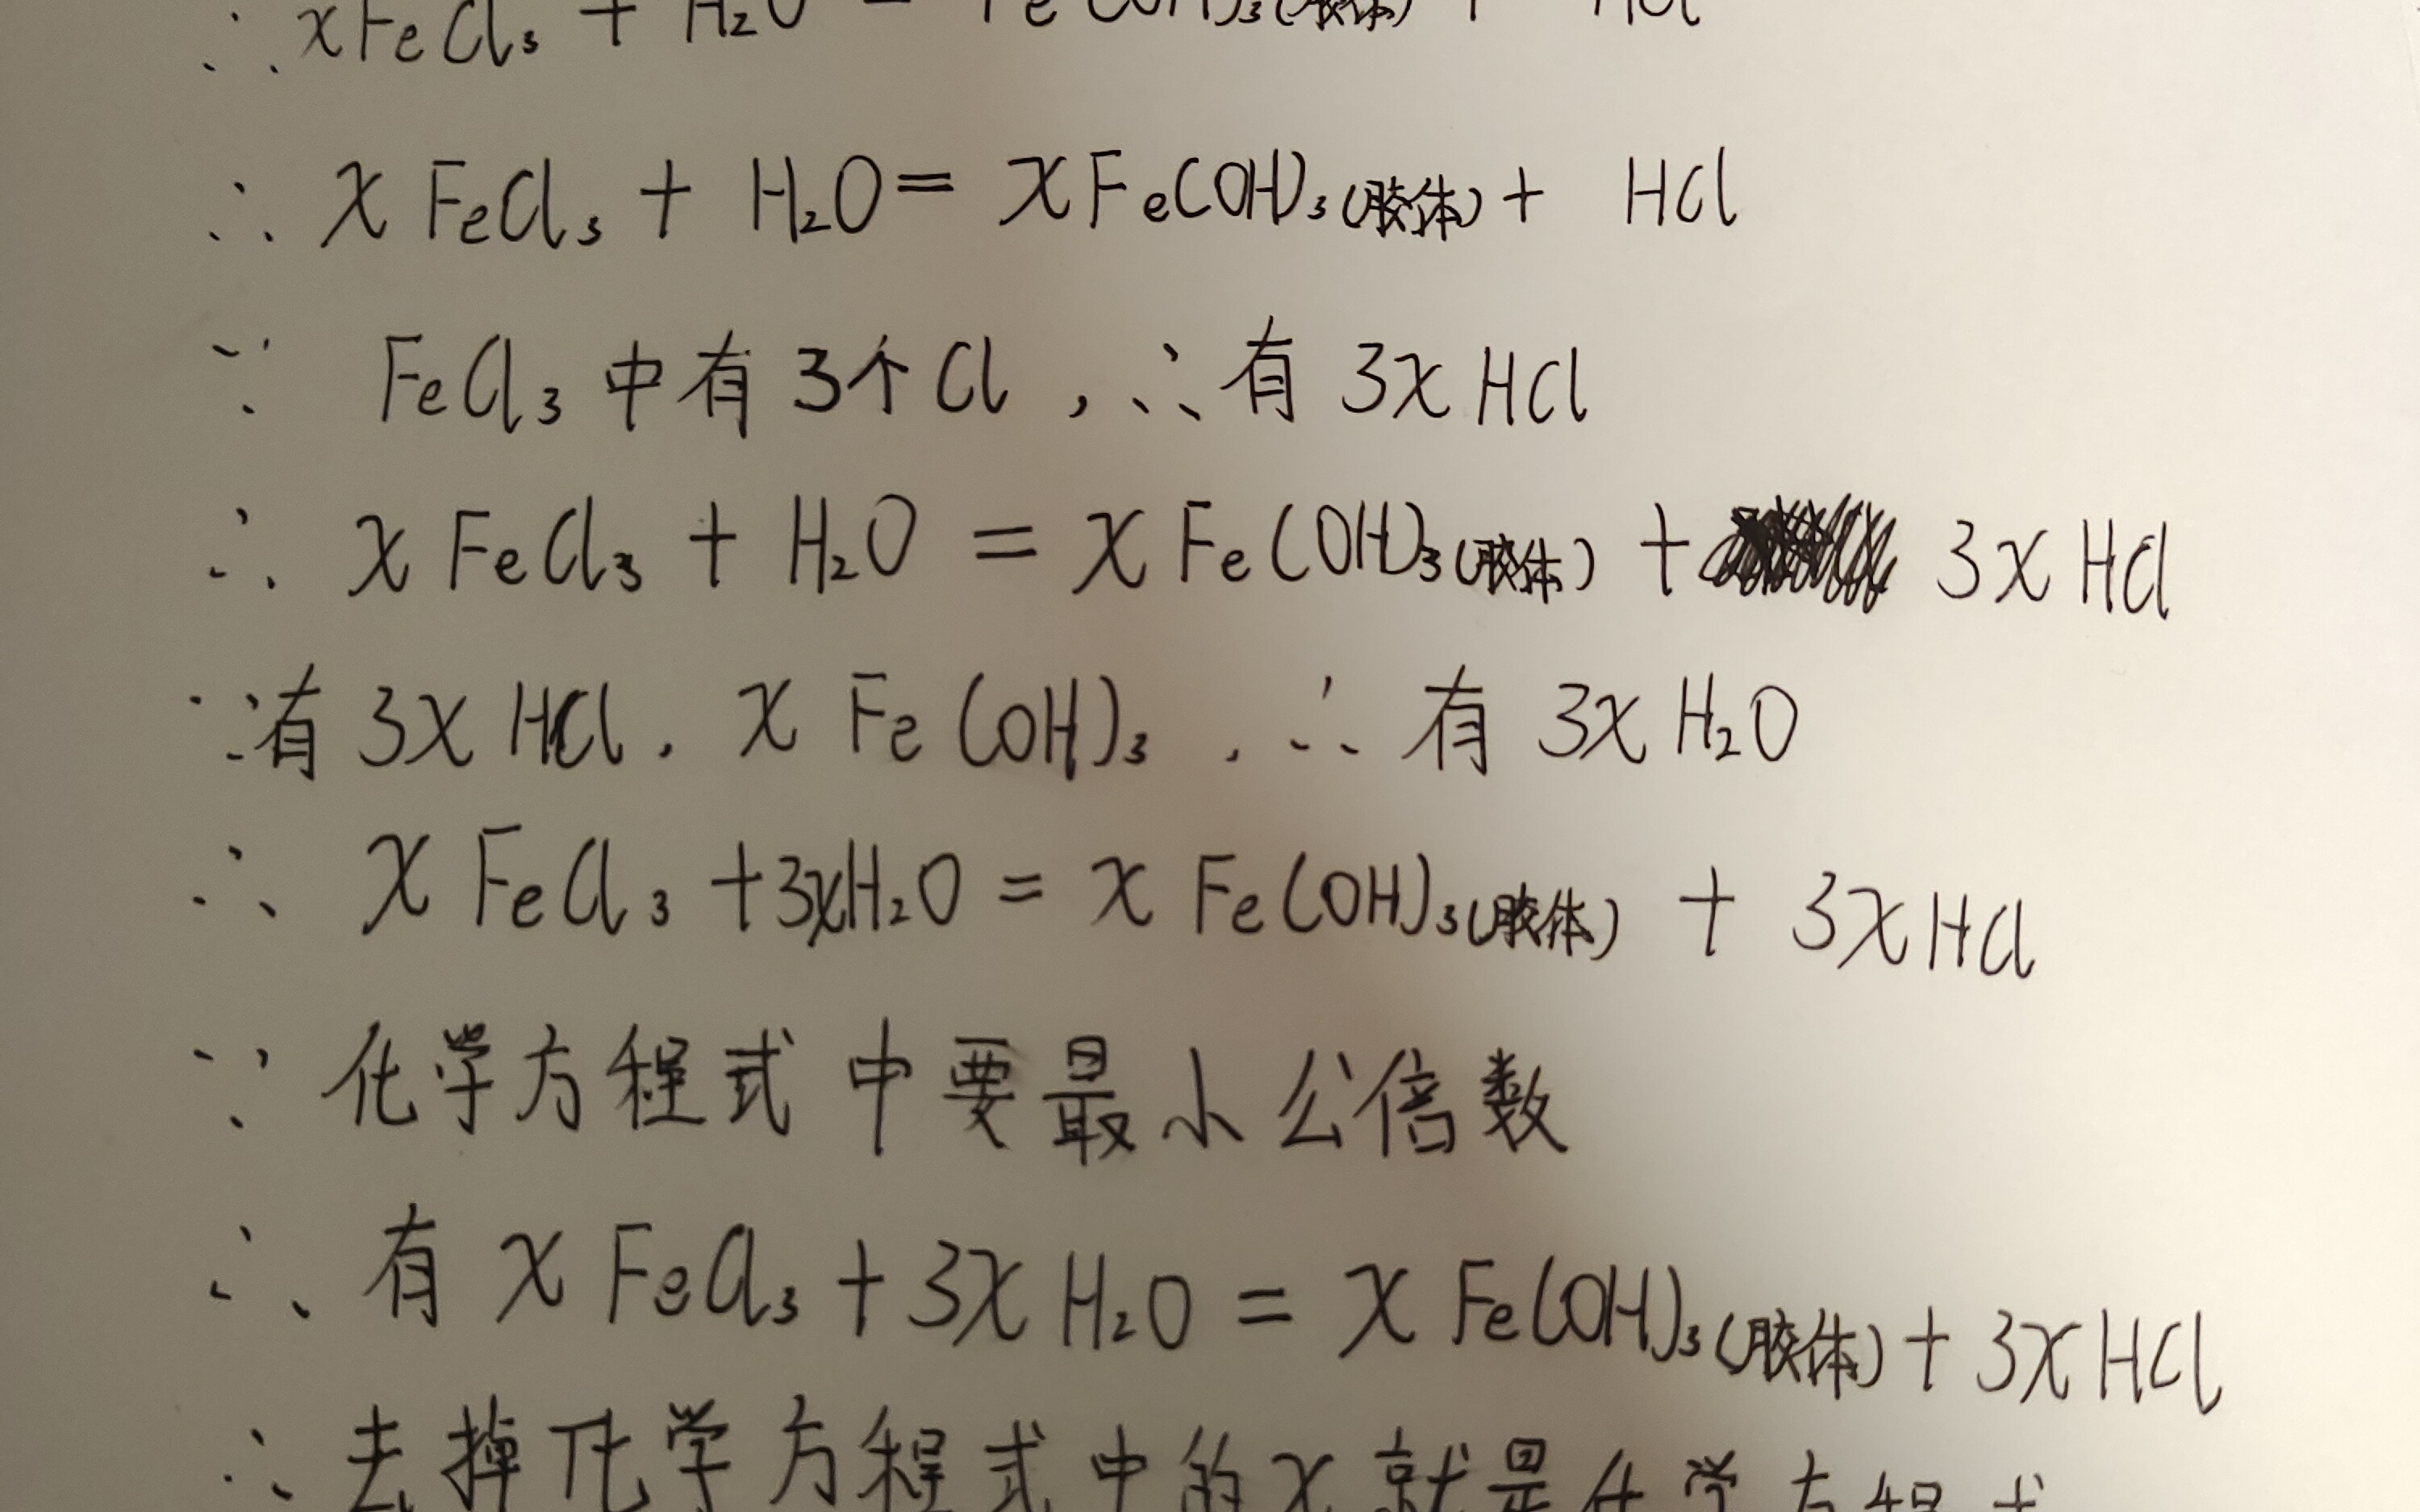 ∴ xFeCl₃ + H₂O = Fe(OH)₃(胶体) + HCl
∴ x FeCl₃ + H₂O = xFe(OH)₃(胶体) + HCl
∵ FeCl₃中有3个Cl,∴有 3x HCl
∴ x FeCl₃ + H₂O = x Fe(OH)₃(胶体) + 3x HCl
∵有 3x HCl. x Fe(OH)₃ ,∴ 有 3x H₂O
∴ x FeCl₃ +3xH₂O = x Fe(OH)₃(胶体) + 3x HCl
∵ 化学方程式中要最小公倍数
∴ 有 x FeCl₃ + 3x H₂O = x Fe(OH)₃(胶体) + 3x HCl
∴ 去掉化学方程式中的x就是化学方程式